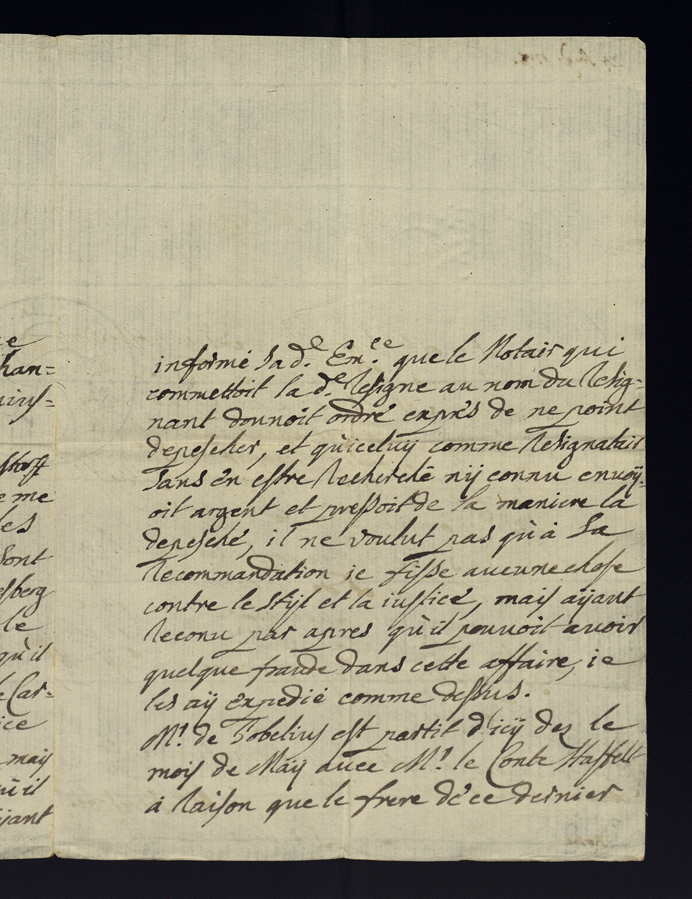 informé Sad.e Em.ce que le Notair qui
commettoit la d.e Resigne au nom du Resig-
nant donnoit ordre exprés de ne point
depescher, et qu'iceluy comme Resignatair
sans en estre Recherché nÿ connu envoÿ-
oit argent et pressoit de la maniere la
depesche, il ne voulut pas qu'à Sa
Recommandation je fisse aucune chose
contre le Stÿl et la iustice, mais aÿant
Reconu par apres qu'il pouvoit avoir
quelque fraude dans cette affaire, ie
les aÿ expedié comme dessus.
M.r de Tobelius est partit d'icÿ dez le
mois de Maÿ avec M.r le Conte
à Raison que le frere de ce dernier
han=
me
les
sont
sberg
le
qu'il
Car=
ice
mais
qu'il
aÿant